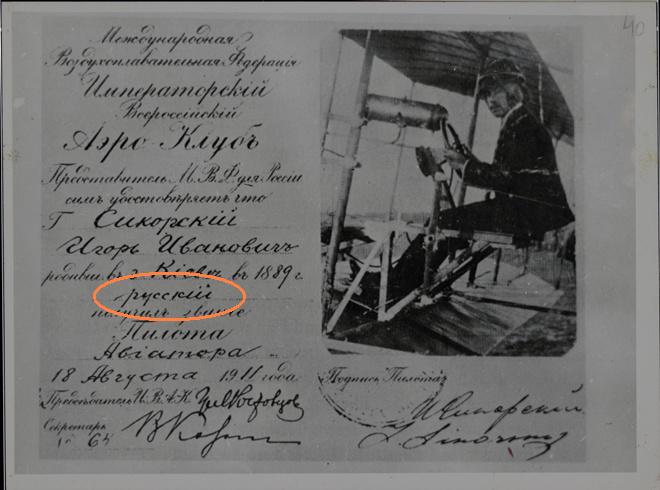 40
Международная
Воздухоплавательная Федерація
Императорскій
Всероссійскій
Аэро-Клубъ
Представитель М.В.Ф. для Россіи
симъ удостовѣряетъ что
Г Сикорскій
Игорь Ивановичъ
родивш. въ г. Кіевѣ въ 1889 г.
русскій
получилъ званіе
Пилота
Авіатора
18 Августа 1911 года
Предсѣдатель И.В.А.К.
Секретарь
№ 64
Подпись Пилота:
И Сикорскій
I. Sikorsky